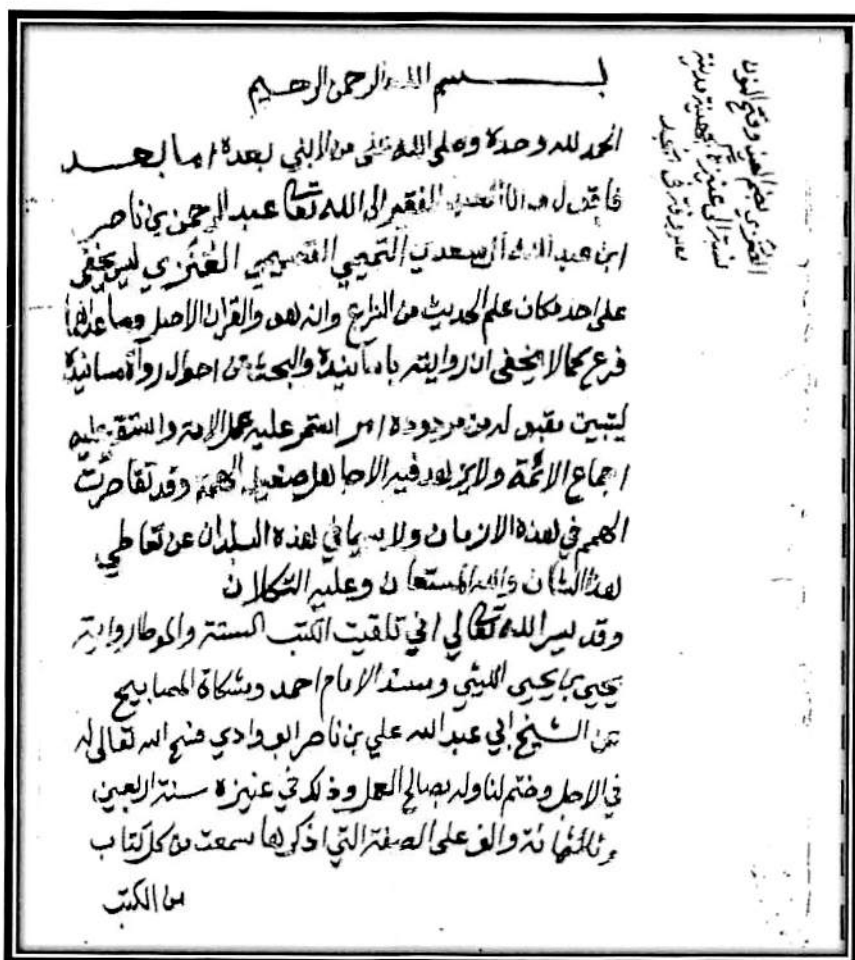 بسم الله الرحمن الرحيم
الحمد لله وحده وصلى الله على من لا نبي بعده اما بعد
فاقول وانا العبد الفقير الى الله تعالى عبد الرحمن بن ناصر
ابن عبد الله آل سعدي التميمي القصيمي العُنَزي ليس يخفى
على احد مكان علم الحديث من الشرع وانه هو والقران الاصل وما عداهما
فرع كما لا يخفى ان روايته باسانيده والبحث عن احوال رواة مسانيده
ليتبين مقبوله من مردوده امر استمر عليه عمل الامة واستقر عليه
اجماع الائمة ولا يزهد فيه الا جاهل ضعيف الهمة وقد تقاصرت
الهمم في هذه الازمان ولا سيما في هذه البلدان عن تعاطي
هذا الشان والله المستعان وعليه التكلان
وقد يسر الله تعالى اني تلقيت الكتب الستة والموطا رواية
يحيى بن يحيى الليثي ومسند الامام احمد ومشكاة المصابيح
عن الشيخ ابي عبد الله علي بن ناصر ابو وادي فسح الله تعالى له
في الاجل وختم لنا وله بصالح العمل وذلك في عنيزة سنة اربعين
وثلثمائة والف على الصفة التي اذكرها سمعت من كل كتاب
من الكتب
العُنَزي بضم العين وفتح النون
نسبة الى عنيزة مدينة
معروفة في نجد